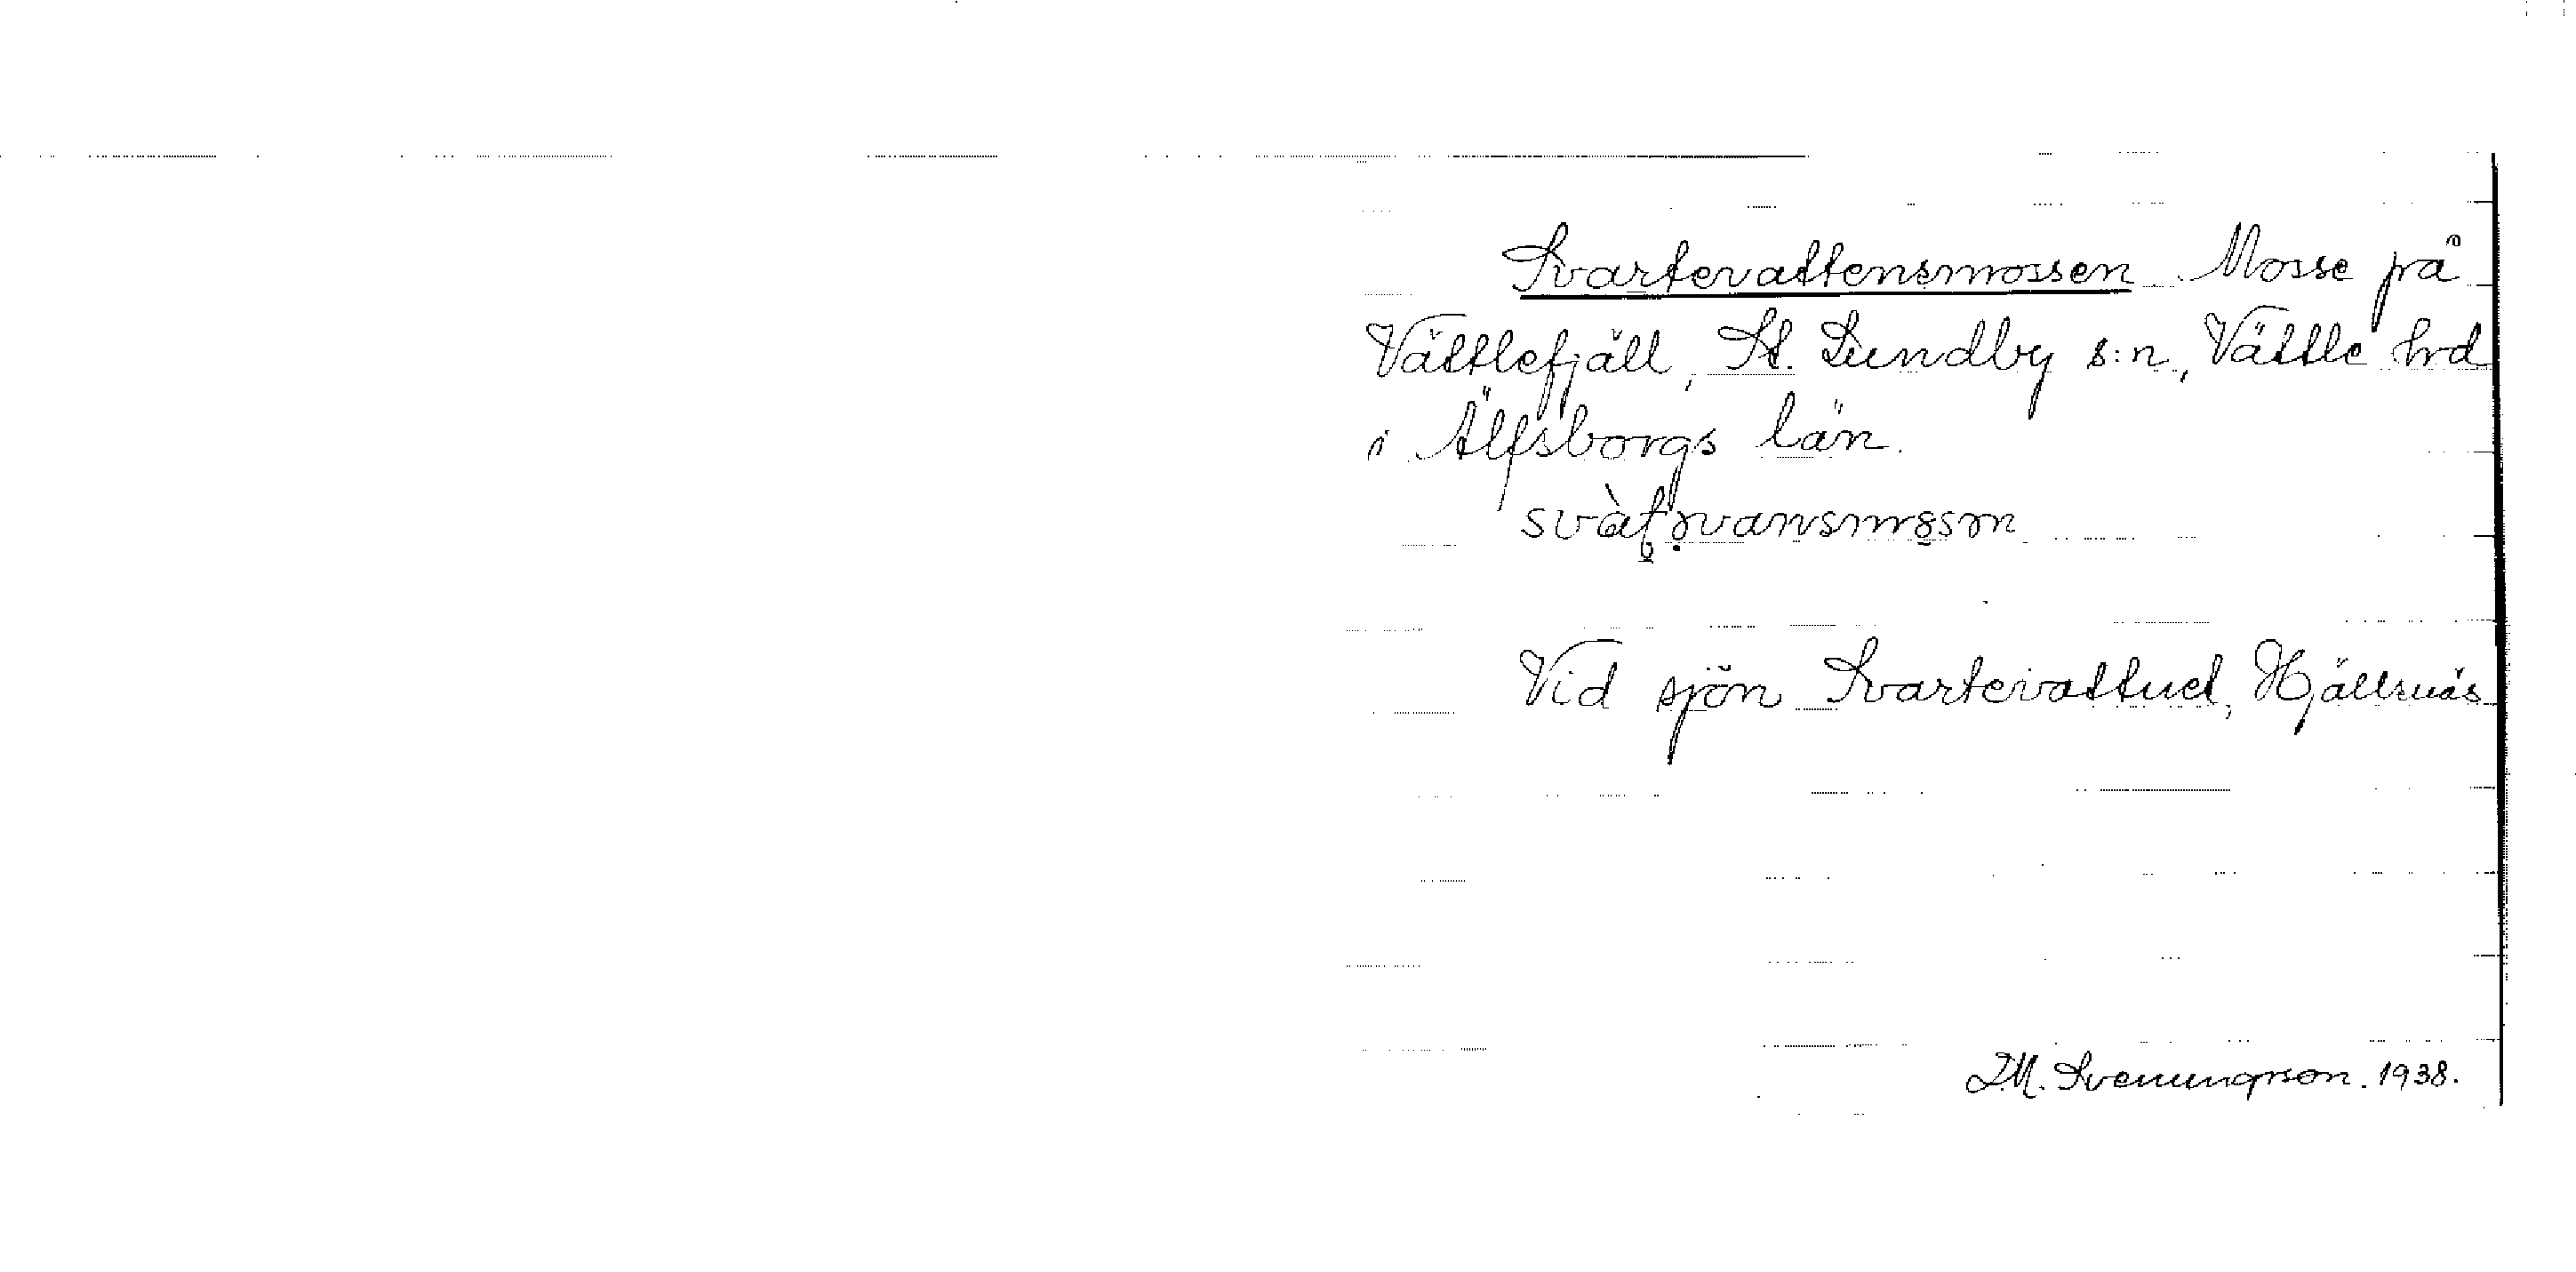 Svartevattensmossen. Mosse på
Vättlefjäll, St. Lundby s:n, Vättle hrd
i Älfsborgs län.
Vid sjön Svartevattnet, Hjällsnäs
M. Svenungsson. 1938.